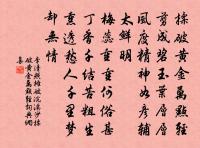 揉破黃金萬點輕
剪成碧玉葉層層
風度精神如彥輔
太鮮明
梅蕊重重何俗甚
丁香千結苦粗生
熏透愁人千里夢
卻無情
李清照攤破浣溪沙揉
破黃金萬點輕